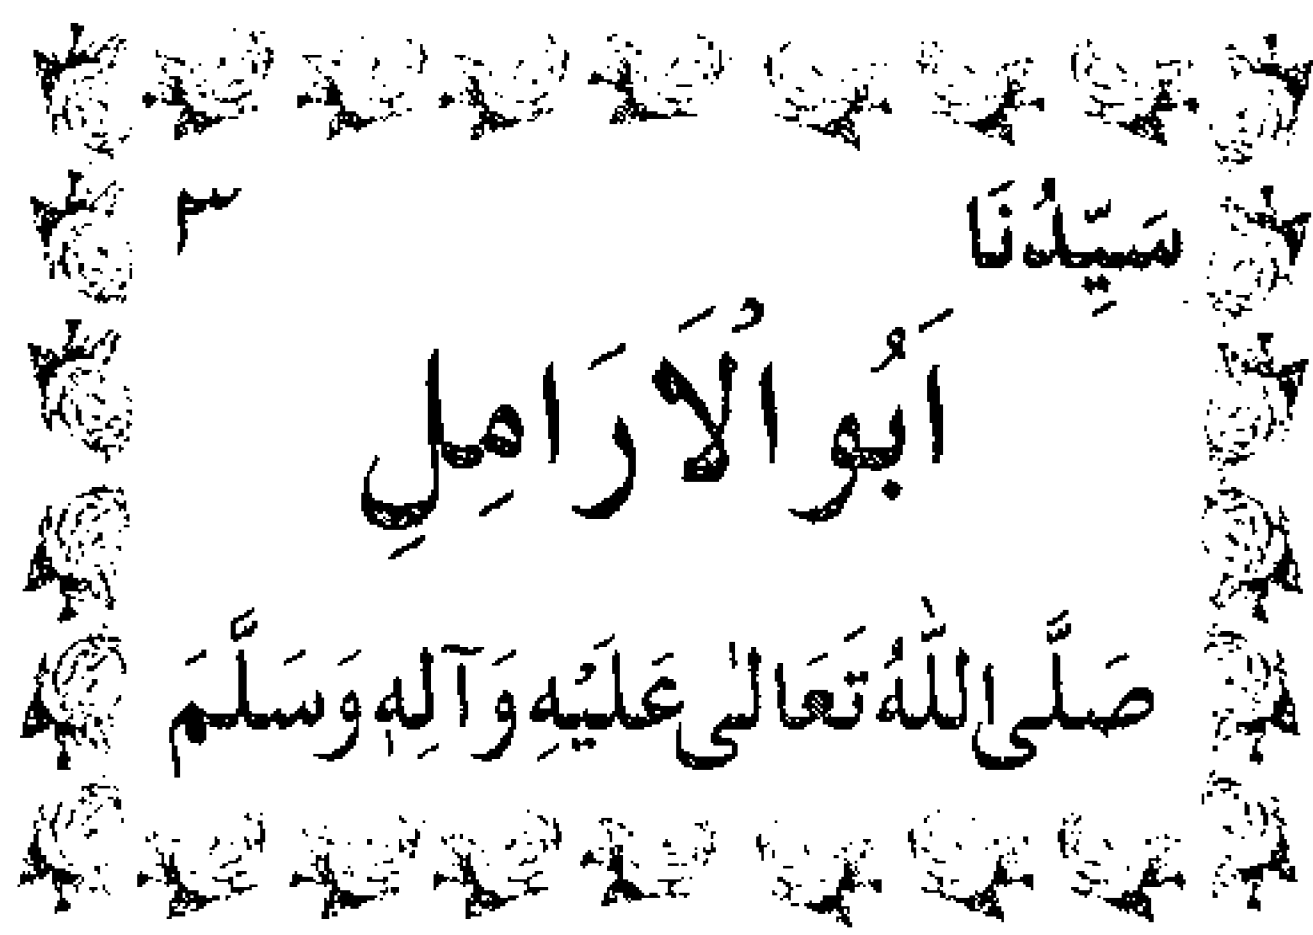 سَيِّدُنَا ٣
اَبُو الْاَرَامِلِ
صَلَّى اللّٰهُ تَعَالٰى عَلَيْهِ وَآلِهٖ وَسَلَّمَ